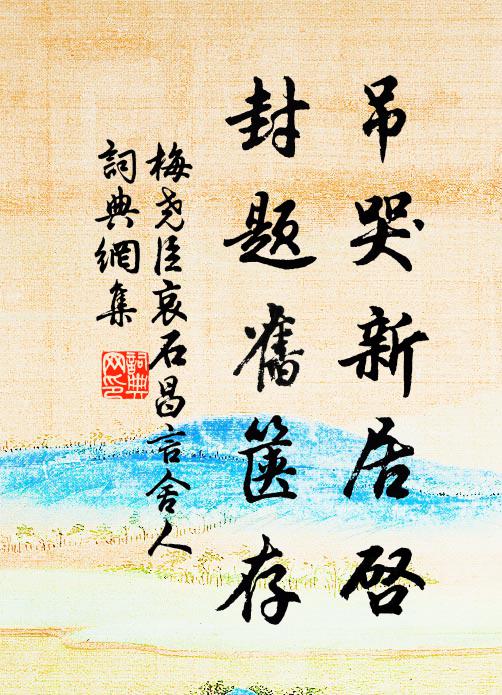 吊哭新居啓
封題舊篋存
梅堯臣哀石昌言舍人
詞典網集
詞典
网印